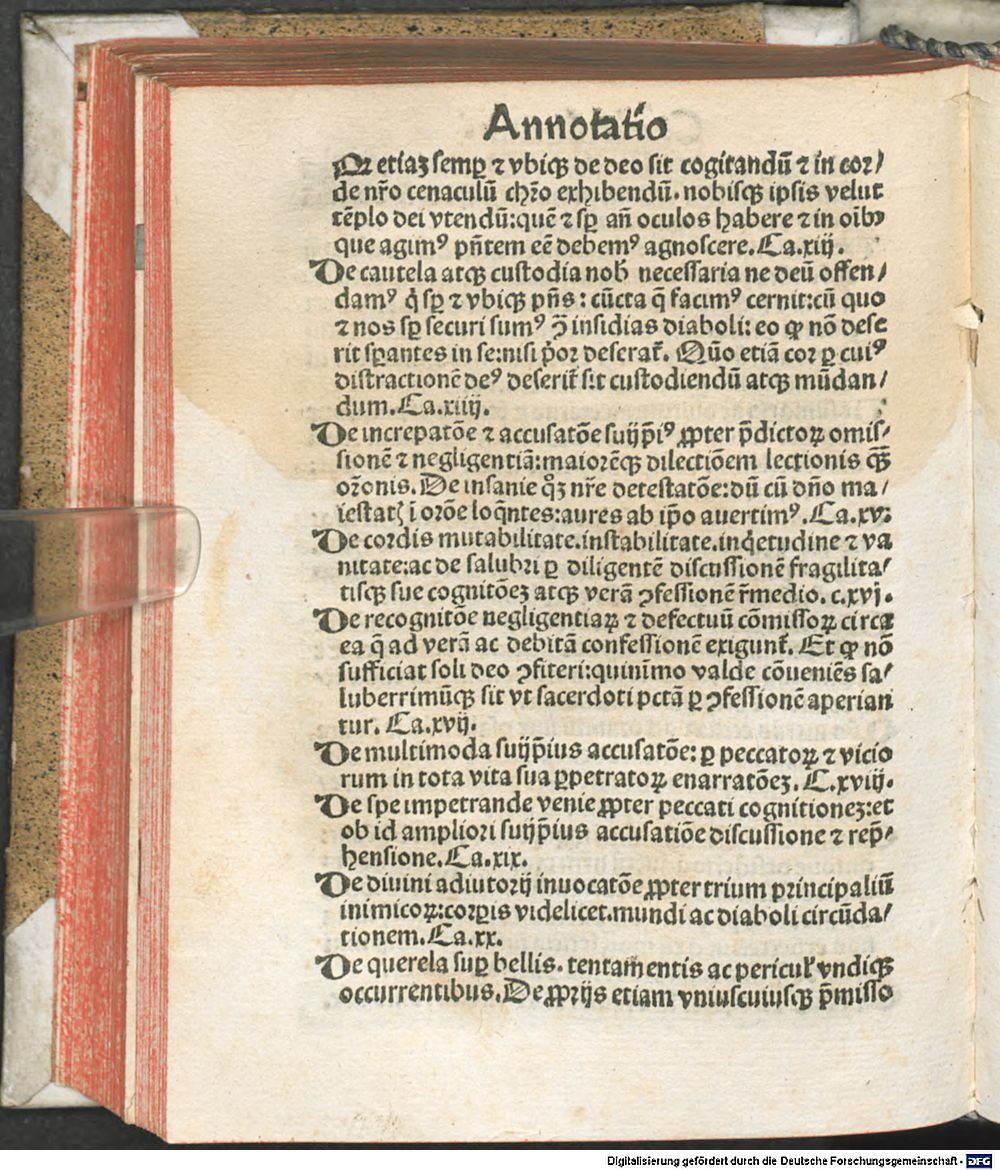 Annotatio
Qꝫ etiaꝫ semꝑ ⁊ vbiqꝫ de deo sit cogitandū ⁊ in cor/
de nr̄o cenaculū chr̄o exhibendū. nobisqꝫ ipsis velut
tēplo dei vtendū: quē ⁊ sꝑ añ oculos habere ⁊ in oı̄bꝰ
que agimꝰ pn̄tem eē debemꝰ agnoscere. Ca.xiij.
De cautela atqꝫ custodia nob̄ necessaria ne deū offen/
damꝰ q̇ sꝑ ⁊ vbiqꝫ pn̄s: cūcta q̄ facimꝰ cernit: cū quo
⁊ nos sꝑ securi sumꝰ ꝯ̄ insidias diaboli: eo ꝙ nō dese
rit sꝑantes in se: nisi p̓or deserat̄. Quō etiā cor ꝑ cuiꝰ
distractionē deꝰ deserit̄ sit custodiendū atqꝫ mūdan/
dum. Ca.xiiij.
De increpatōe ⁊ accusatōe suijp̄iꝰ ꝓpter p̄dictoꝝ omis/
sionē ⁊ negligentiā: maiorēqꝫ dilectiōem lectionis qꝫ̄
or̄onis. De insanie qꝫ̊ nr̄e detestatōe: dū cū dn̄o ma/
iestatꝭ ī orōe loq̄ntes: aures ab ip̄o auertimꝰ. Ca.xv.
De cordis mutabilitate. instabilitate. inq̇etudine ⁊ va
nitate: ac de salubri ꝑ diligentē discussionē fragilita/
tisqꝫ sue cognitōeꝫ atqꝫ verā ꝯfessionē r̄medio. c.xvj.
De recognitōe negligentiaꝝ ⁊ defectuū cōmissoꝝ circa
ea q̄ ad verā ac debitā confessionē exigunt̄. Et ꝙ nō
sufficiat soli deo ꝯfiteri: quinīmo valde cōueniēs sa/
luberrimūqꝫ sit vt sacerdoti pctā ꝑ ꝯfessionē aperian
tur. Ca.xvij.
De multimoda suijp̄ius accusatōe: ꝑ peccatoꝝ ⁊ vicio
rum in tota vita sua ꝑpetratoꝝ enarratōeꝫ. C.xviij.
De spe impetrande venie ꝓpter peccati cognitioneꝫ: et
ob id ampliori suijp̄ius accusatiōe discussione ⁊ rep̄/
hensione. Ca.xix.
De diuini adiutorij inuocatōe ꝓpter trium principaliū
inimicoꝝ: corꝑis videlicet. mundi ac diaboli circūda/
tionem. Ca.xx.
De querela suꝑ bellis. tentamentis ac pericul̓ vndiqꝫ
occurrentibus. De ꝓprijs etiam vniuscuiusqꝫ p̄misso
Digitalisierung gefördert durch die Deutsche Forschungsgemeinschaft - DFG